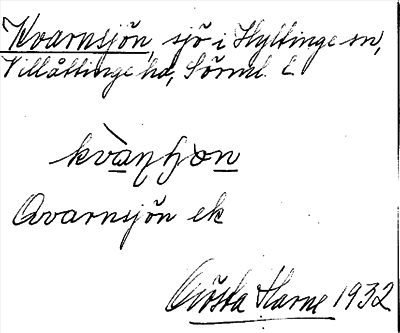 Kvarnsjön, sjö i Hyltinge sn,
Villåttinge hd, Sörml. L.
kvàɳʃo̱n
Qvarnsjön ek
Gösta Harne 1932